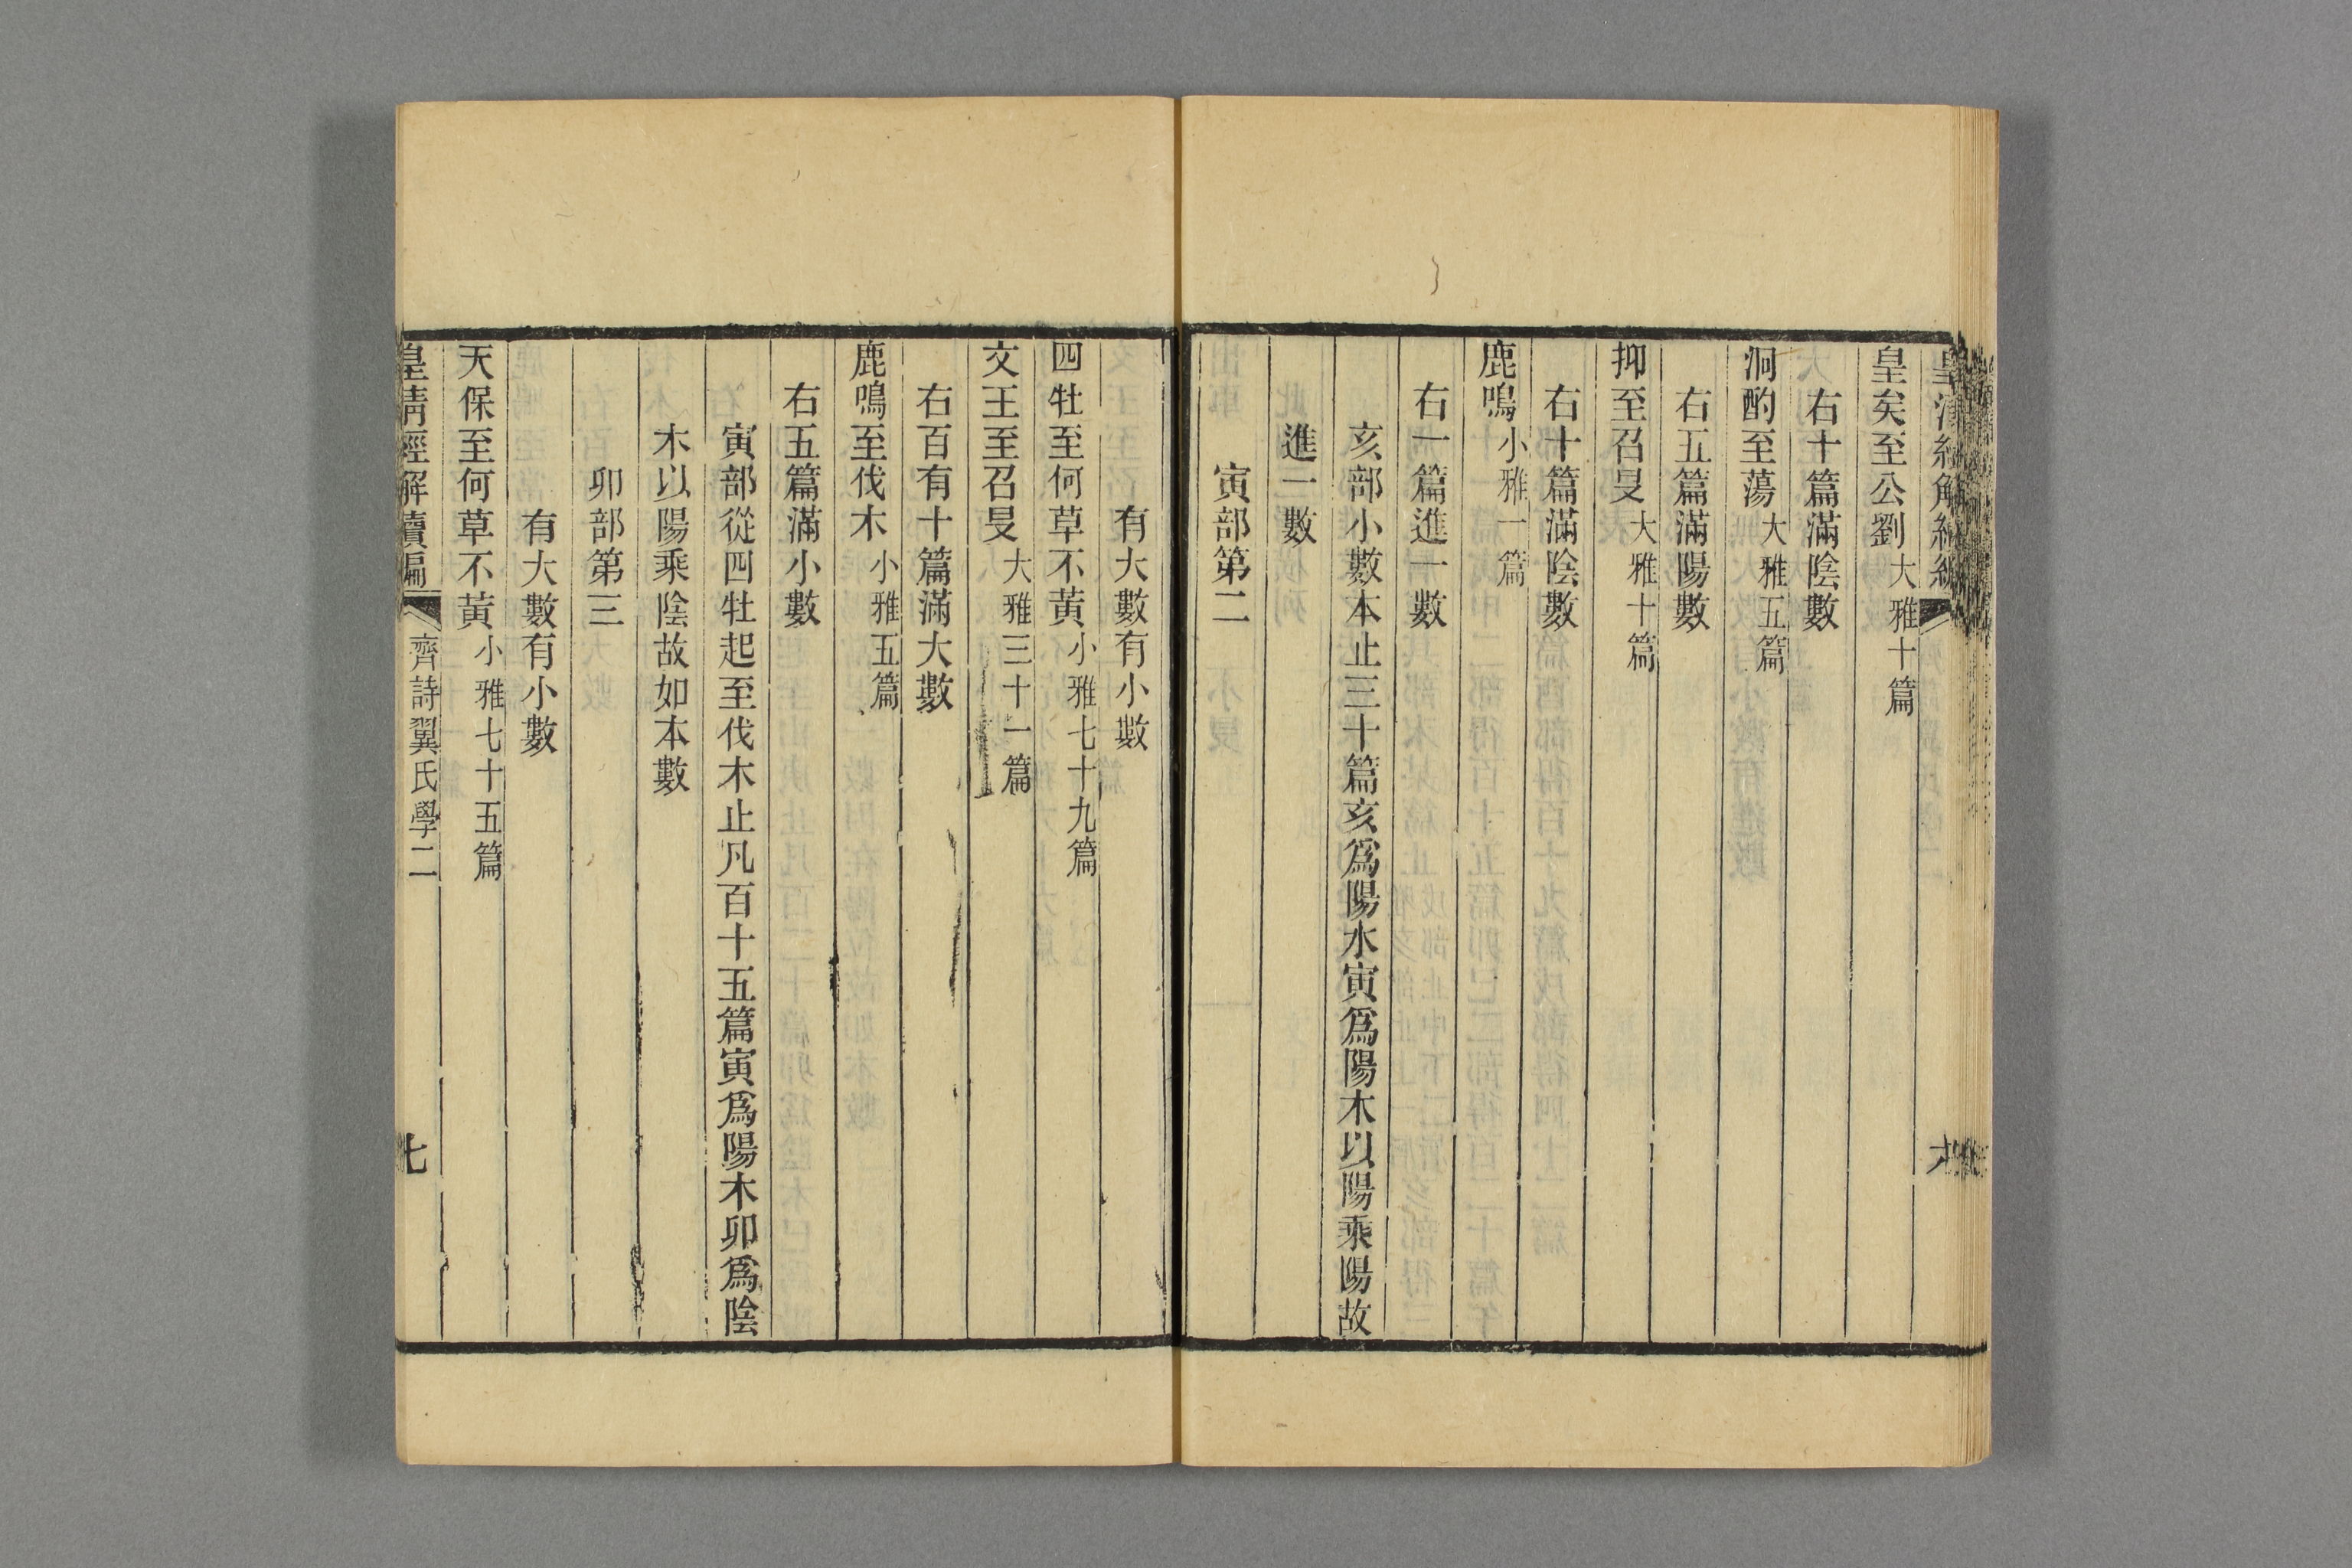 皇矣至公劉大雅十篇
右十篇滿陰數
泂酌至蕩大雅五篇
右五篇滿陽數
抑至召旻大雅十篇
右十篇滿陰數
鹿鳴小雅一篇
右一篇進一數
亥部小數本止三十篇亥爲陽水寅爲陽木以陽乘陽故
進一數
寅部第二
有大數有小數
四牡至何草不黄小雅七十九篇
文王至召旻大雅三十一篇
右百有十篇滿大數
鹿鳴至伐木小雅五篇
右五篇滿小數
寅部從四牡起至伐木止凡百十五篇寅爲陽木卯爲陰
木以陽乘陰故如本數
卯部第三
有大數有小數
天保至何草不黄小雅七十五篇
皇清經解續編 齊詩翼氏學二 七